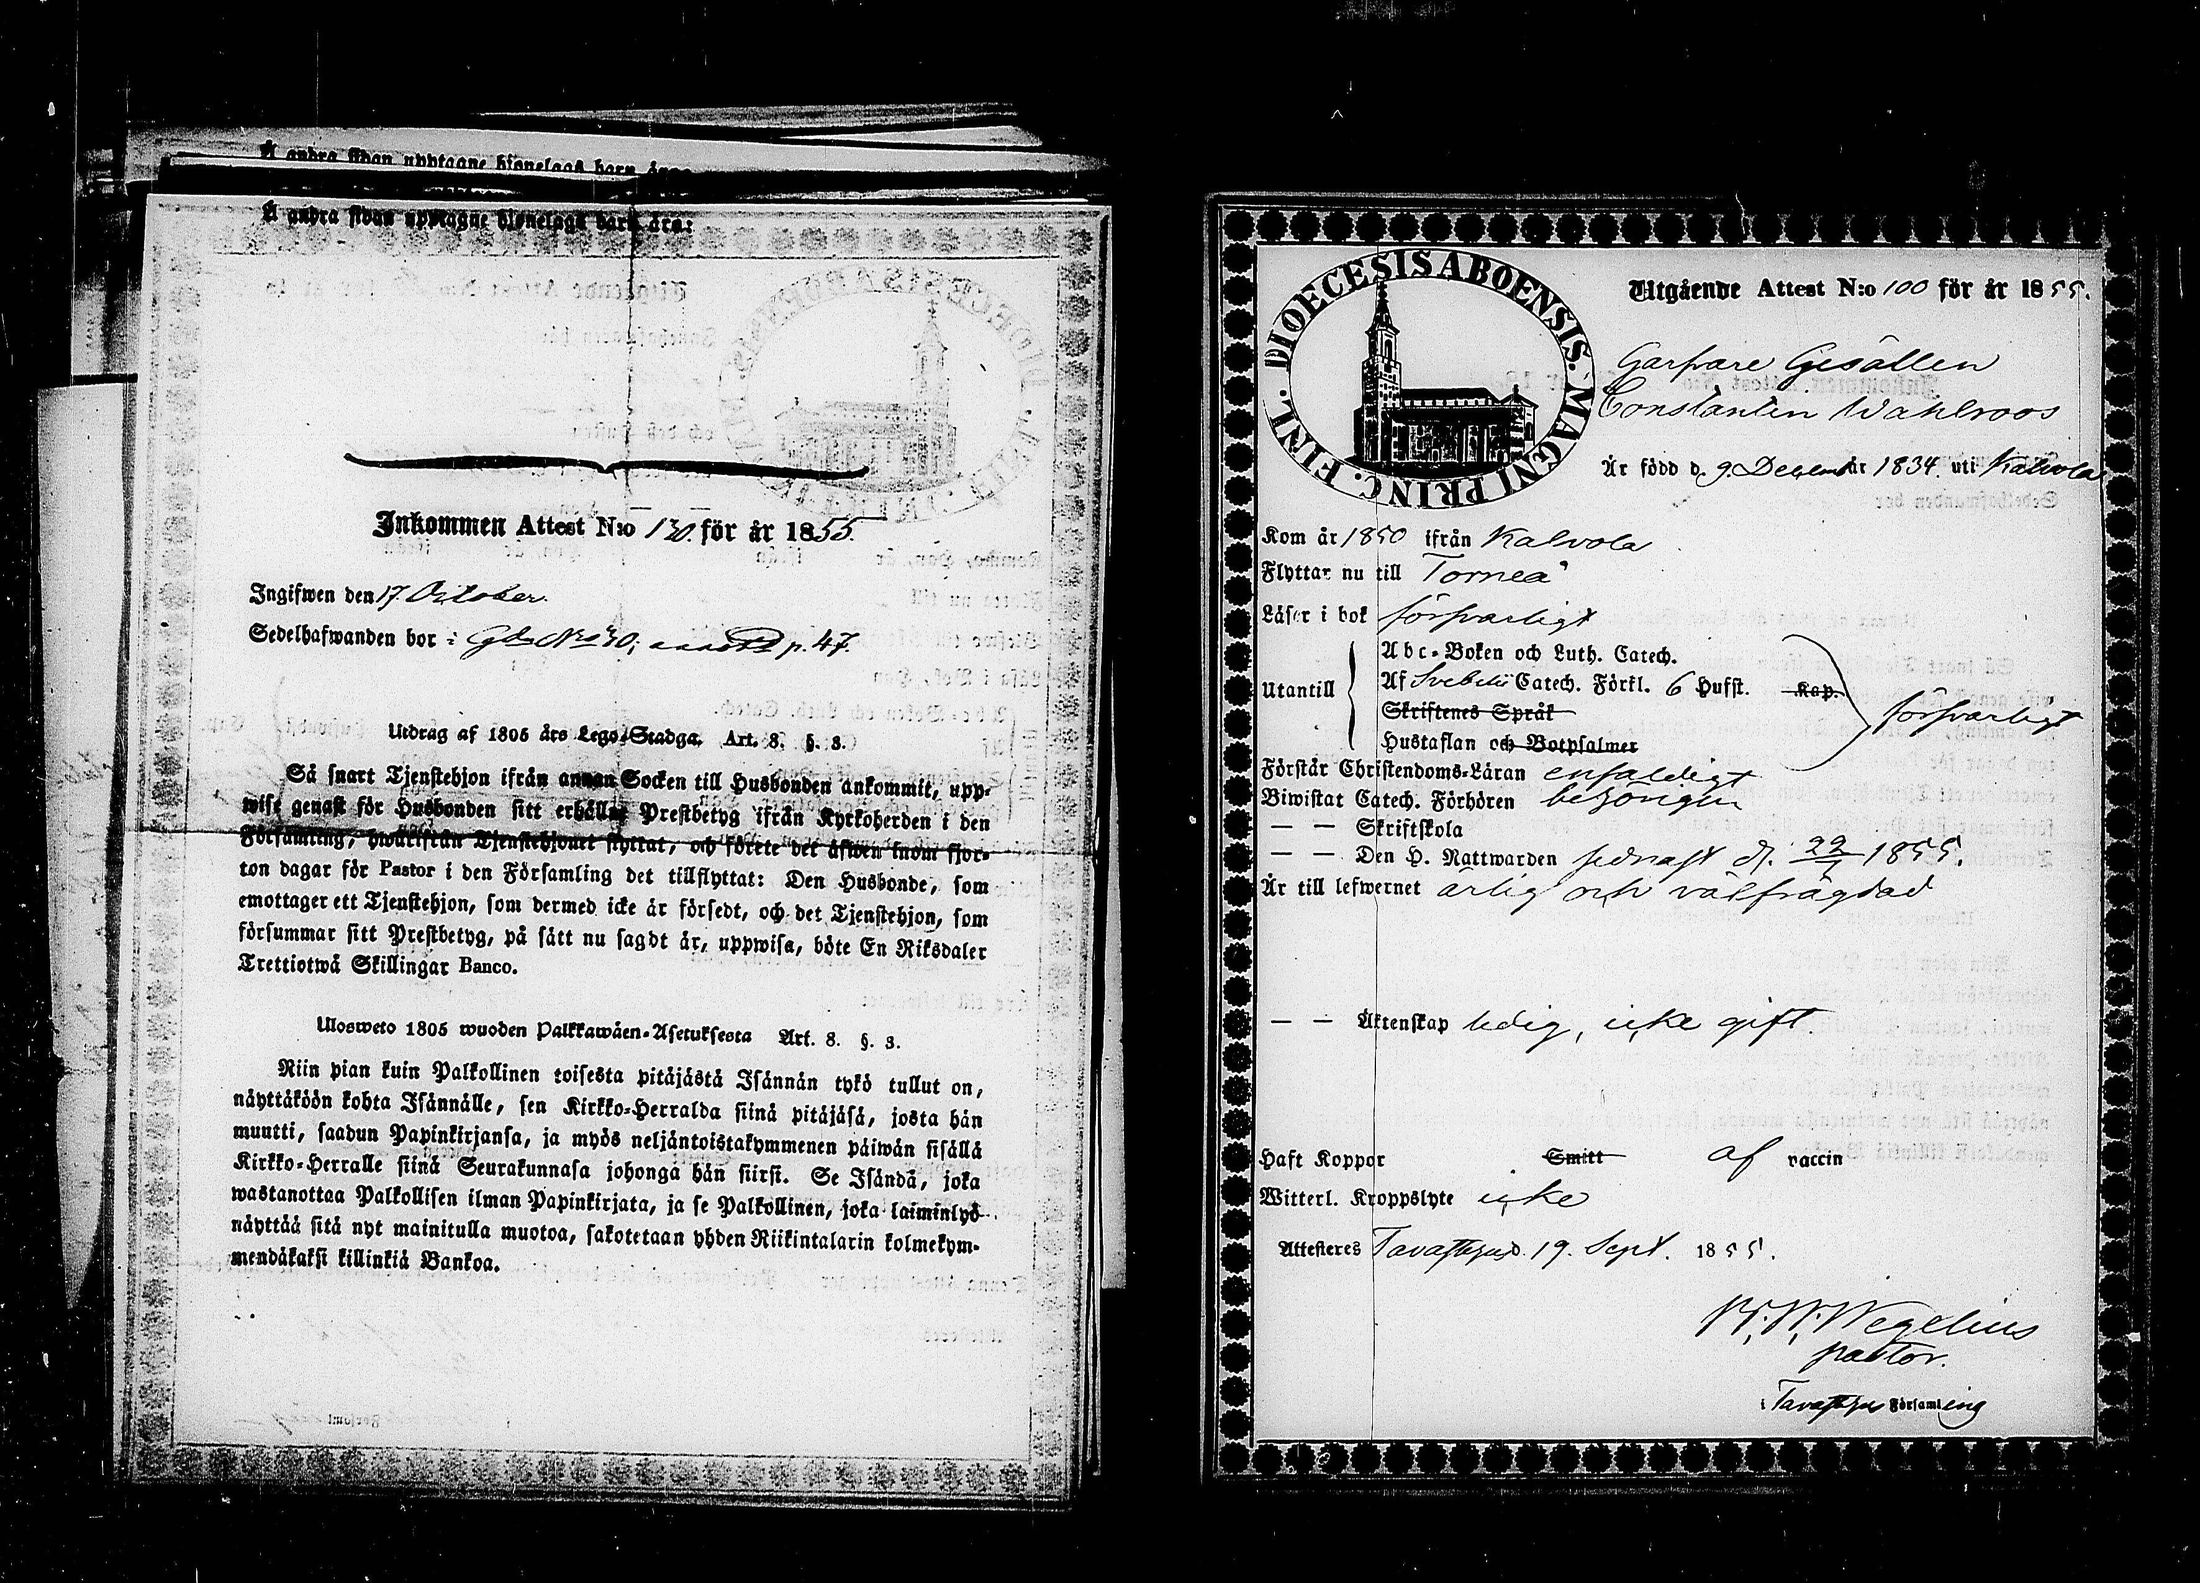 Å andra sidan upptagne hjonelags barn äro:
Å andra sidan upptagne hjonelags barn äro:
Inkommen Attest N:o 130. för år 1855.
Ingifwen den 17. October.
Sedelhafwanden bor i Gd. N:o 30; p. 47.
Utdrag af 1805 års Lego-Stadga. Art. 8. §. 3.
Så snart Tjenstehjon ifrån annan Socken till Husbonden ankommit, upp-
wise genast för Husbonden sitt erhållne Prestbetyg ifrån Kyrkoherden i den
Församling, hwarifrån Tjenstehjonet flyttat, och förete det äfwen inom fjor-
ton dagar för Pastor i den Församling det tillflyttat: Den Husbonde, som
emottager ett Tjenstehjon, som dermed icke är försedt, och det Tjenstehjon, som
försummar sitt Prestbetyg, på sätt nu sagdt är, uppwisa, böte En Riksdaler
Trettiotwå Skillingar Banco.
Ulosweto 1805 wuoden Palkkawäen-Asetuksesta Art. 8. §. 3.
Niin pian kuin Palkollinen toisesta pitäjästä Isännän tykö tullut on,
näyttäköön kohta Isännälle, sen Kirkko-Herralda siinä pitäjäsä, josta hän
muutti, saadun Papinkirjansa, ja myös neljäntoistakymmenen päiwän sisällä
Kirkko-Herralle siinä Seurakunnasa johonga hän siirsi. Se Isändä, joka
wastanottaa Palkollisen ilman Papinkirjata, ja se Palkollinen, joka laiminlyö
näyttää sitä nyt mainitulla muotoa, sakotetaan yhden Riikintalarin kolmekym-
mendäkaksi killinkiä Bankoa.
DIOECESIS ABOENSIS. MAGNI PRINC. FINL.
Utgående Attest N:o 100 för år 1855.
Garfvare Gesällen
Constantin Wahlroos
Är född d. 9. December 1834. uti Kalvola
Kom år 1850 ifrån Kalvola
Flyttar nu till Torneå
Läser i bok försvarligt
Utantill
Abc-Boken och Luth. Catech.
Af Svebelii Catech. Förkl. 6 Hufst. Kap.
Skriftenes Språk
Hustaflan och Botpsalmer
försvarligt
Förstår Christendoms-Läran enfaldigt
Biwistat Catech. Förhören behörigen
— — Skriftskola
— — Den H. Nattwarden sednast d. 22/7 1855.
Är till lefwernet ärlig och välfrägdad
— — Äktenskap ledig, icke gift.
Haft Koppor Smitt af vaccin
Witterl. Kroppslyte icke
Attesteres Tavastehus d. 19. Sept. 1855.
Wegelius
pastor.
i Tavastehus Församling